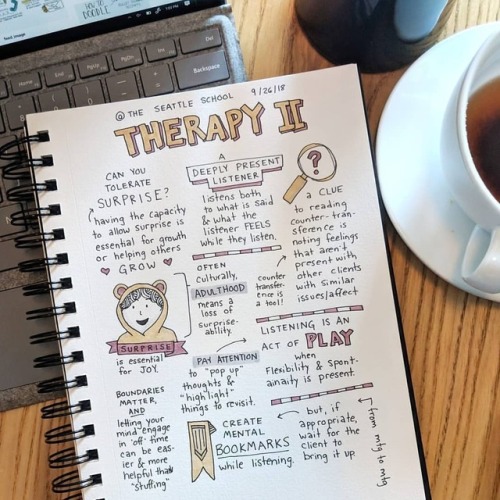 @ THE SEATTLE SCHOOL 9/26/18
THERAPY II
CAN YOU
TOLERATE
SURPRISE?
having the capacity
to allow surprise is
essential for growth
or helping others
GROW
SURPRISE
is essential
for JOY.
BOUNDARIES
MATTER,
AND
letting your
mind engage
in 'off' time
can be eas-
ier & more
helpful than
"stuffing"
A
DEEPLY PRESENT
LISTENER
listens both
to what is said
& what the
listener FEELS
while they listen.
OFTEN
culturally,
ADULTHOOD
means a
loss of
surprise-
ability.
PAY ATTENTION
to "pop up"
thoughts &
"highlight"
things to revisit.
CREATE
MENTAL
BOOKMARKS
while listening.
?
a CLUE
to reading
counter-tran-
sference is
noting feelings
that aren't
present with
other clients
with similar
issues/affect
counter
transfer-
ence is
a tool!
LISTENING IS AN
ACT OF PLAY
when
Flexibility & spont-
ainaity is present.
but, if
appropriate,
wait for the
client to
bring it up
from mtg to mtg
Home
PgUp
PgDn
End
Del
Backspace